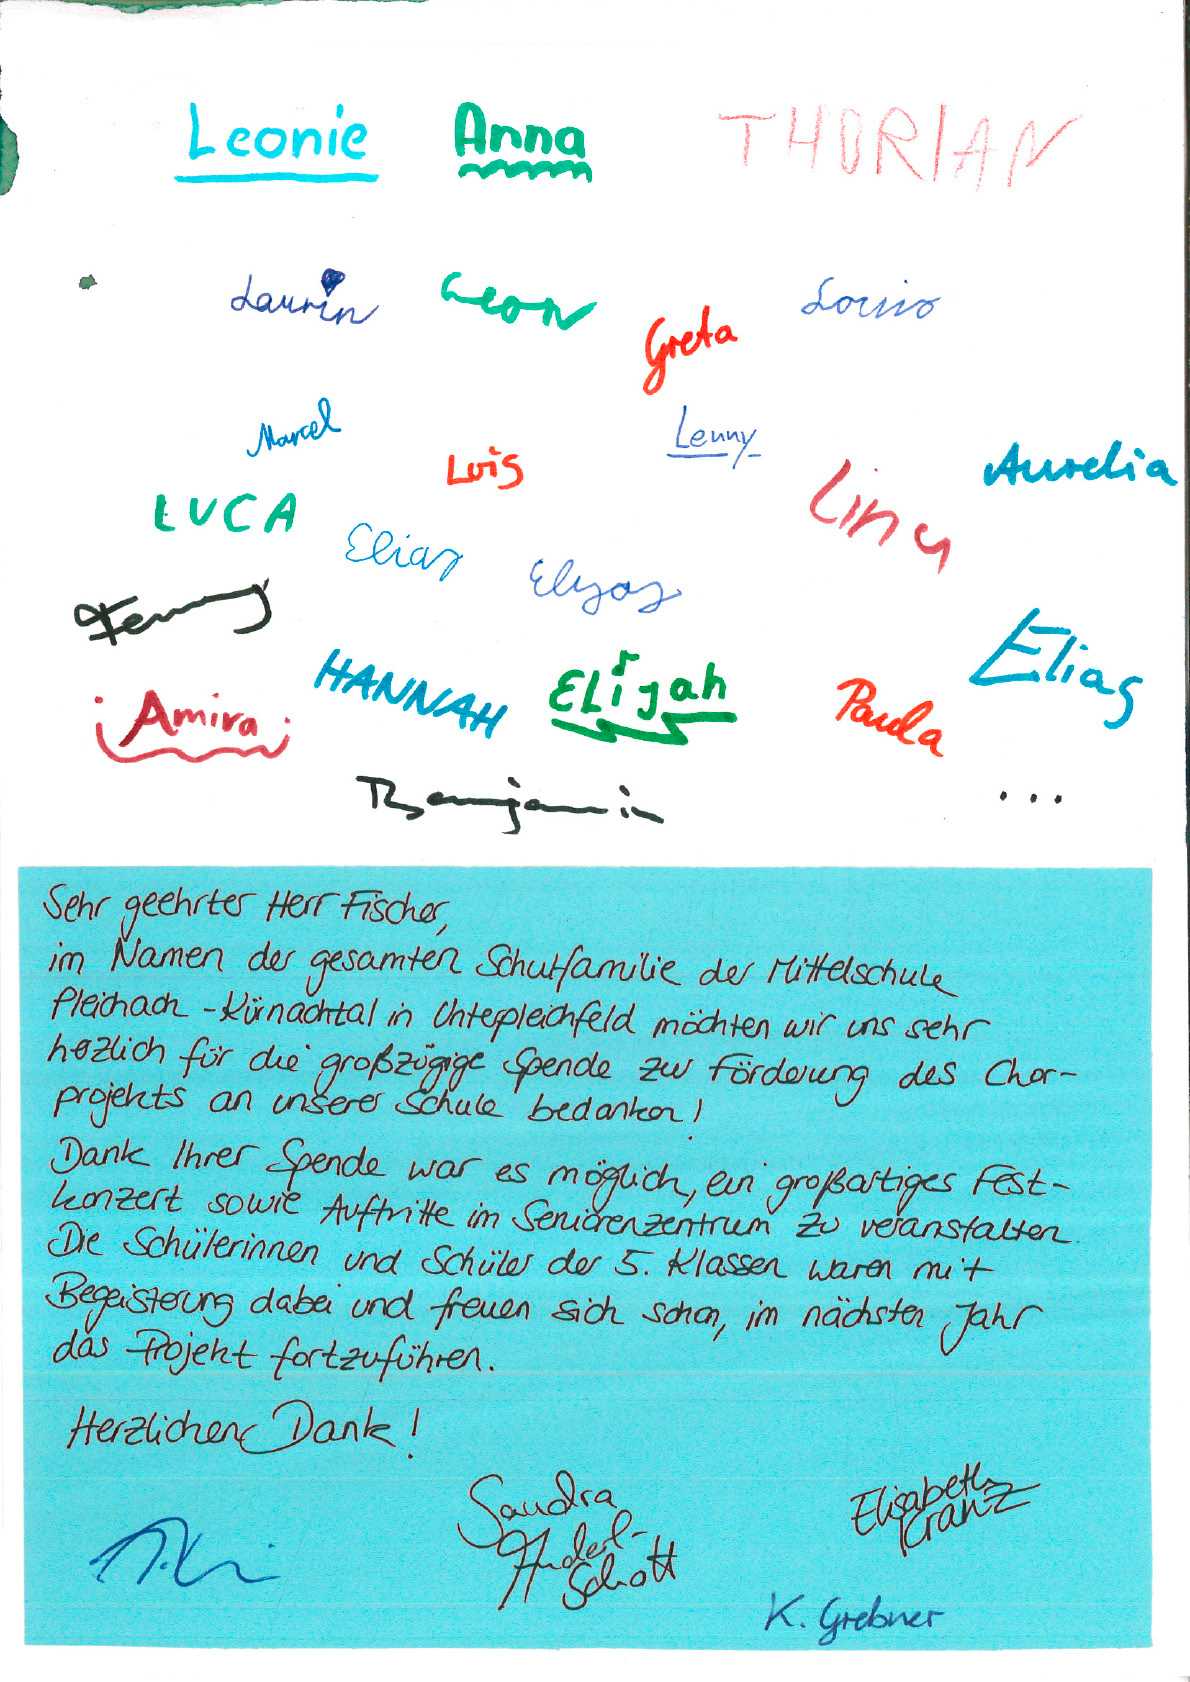 Leonie Anna THORIAN
Laurin Leon Greta Louis
Marcel Luis Lenny Aurelia
LUCA Elias Elyas Lina
HANNAH ELijah Paula Elias
Amira
Benjamin ...
Sehr geehrter Herr Fischer,
im Namen der gesamten Schulfamilie der Mittelschule
Pleichach-Kürnachtal in Unterpleichfeld möchten wir uns sehr
herzlich für die großzügige Spende zur Förderung des Chor-
projekts an unserer Schule bedanken!
Dank Ihrer Spende war es möglich, ein großartiges Fest-
konzert sowie Auftritte im Seniorenzentrum zu veranstalten.
Die Schülerinnen und Schüler der 5. Klassen waren mit
Begeisterung dabei und freuen sich schon, im nächsten Jahr
das Projekt fortzuführen.
Herzlichen Dank!
Sandra
Anderl-
Schott
Elisabeth
Kranz
K. Grebner